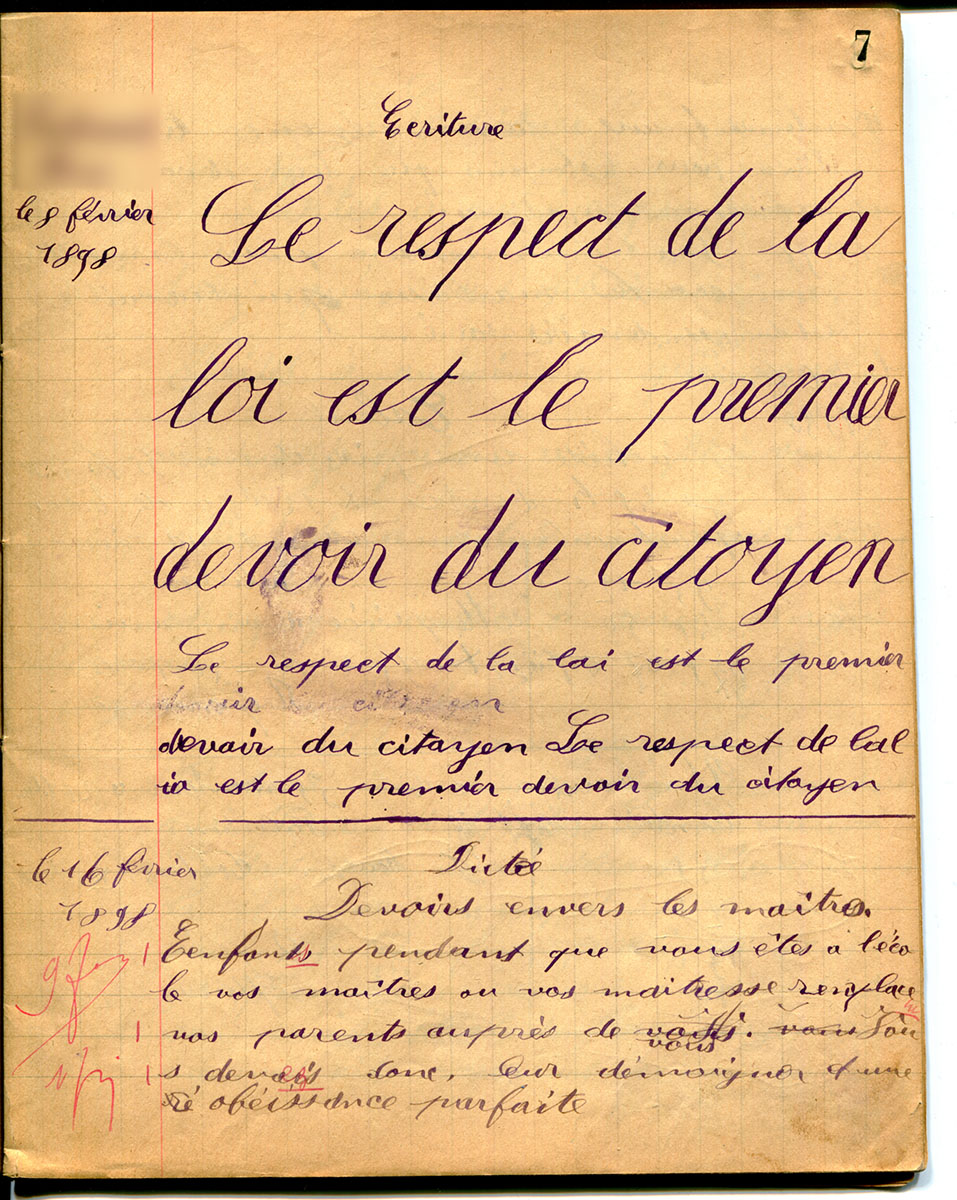 7
Ecriture
le 9 février
1898
Le respect de la
loi est le premier
devoir du citoyen
Le respect de la lai est le premier
devoir citoyen
devair du citayen Le respect de lal
io est le premier devoir du citoyen
le 16 février
1898
Dictée
Devoirs envers les maîtres.
Eenfants pendant que vous êtes a l'éco
le vos maîtres ou vos maitresse remplace
vos parents auprés de vous. vous
s devez donc, leur démoigner d'une
obéissance parfaite